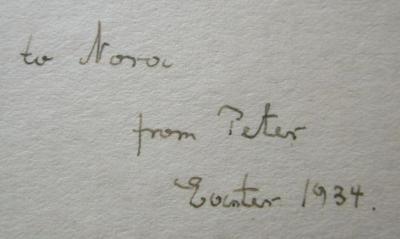 to Nora
from Peter
Easter 1934.